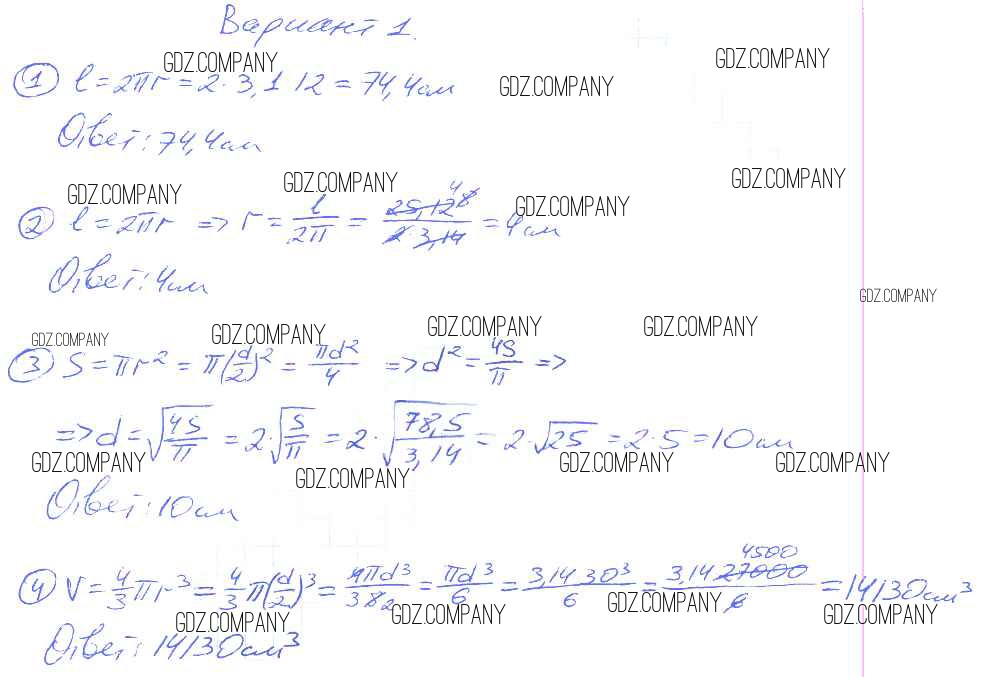 Вариант 1.
GDZ.COMPANY GDZ.COMPANY
① l = 2πr = 2 · 3,1 12 = 74,4 см GDZ.COMPANY
Ответ: 74,4 см
GDZ.COMPANY GDZ.COMPANY GDZ.COMPANY
② l = 2πr => r = l/2π = 25,12 8 4 / 2 3,14 = 4 см GDZ.COMPANY
Ответ: 4 см
GDZ.COMPANY
GDZ.COMPANY GDZ.COMPANY GDZ.COMPANY GDZ.COMPANY
③ S = πr² = π(d/2)² = πd²/4 => d² = 4S/π =>
=> d = √(4S/π) = 2 · √(S/π) = 2 · √(78,5/3,14) = 2 · √25 = 2 · 5 = 10 см
GDZ.COMPANY GDZ.COMPANY GDZ.COMPANY GDZ.COMPANY
Ответ: 10 см
④ V = 4/3 πr³ = 4/3 π(d/2)³ = 4πd³/3 8 2 = πd³/6 = 3,14 30³/6 = 3,14 27000 4500 / 6 = 14130 см³
GDZ.COMPANY GDZ.COMPANY GDZ.COMPANY GDZ.COMPANY
Ответ: 14130 см³